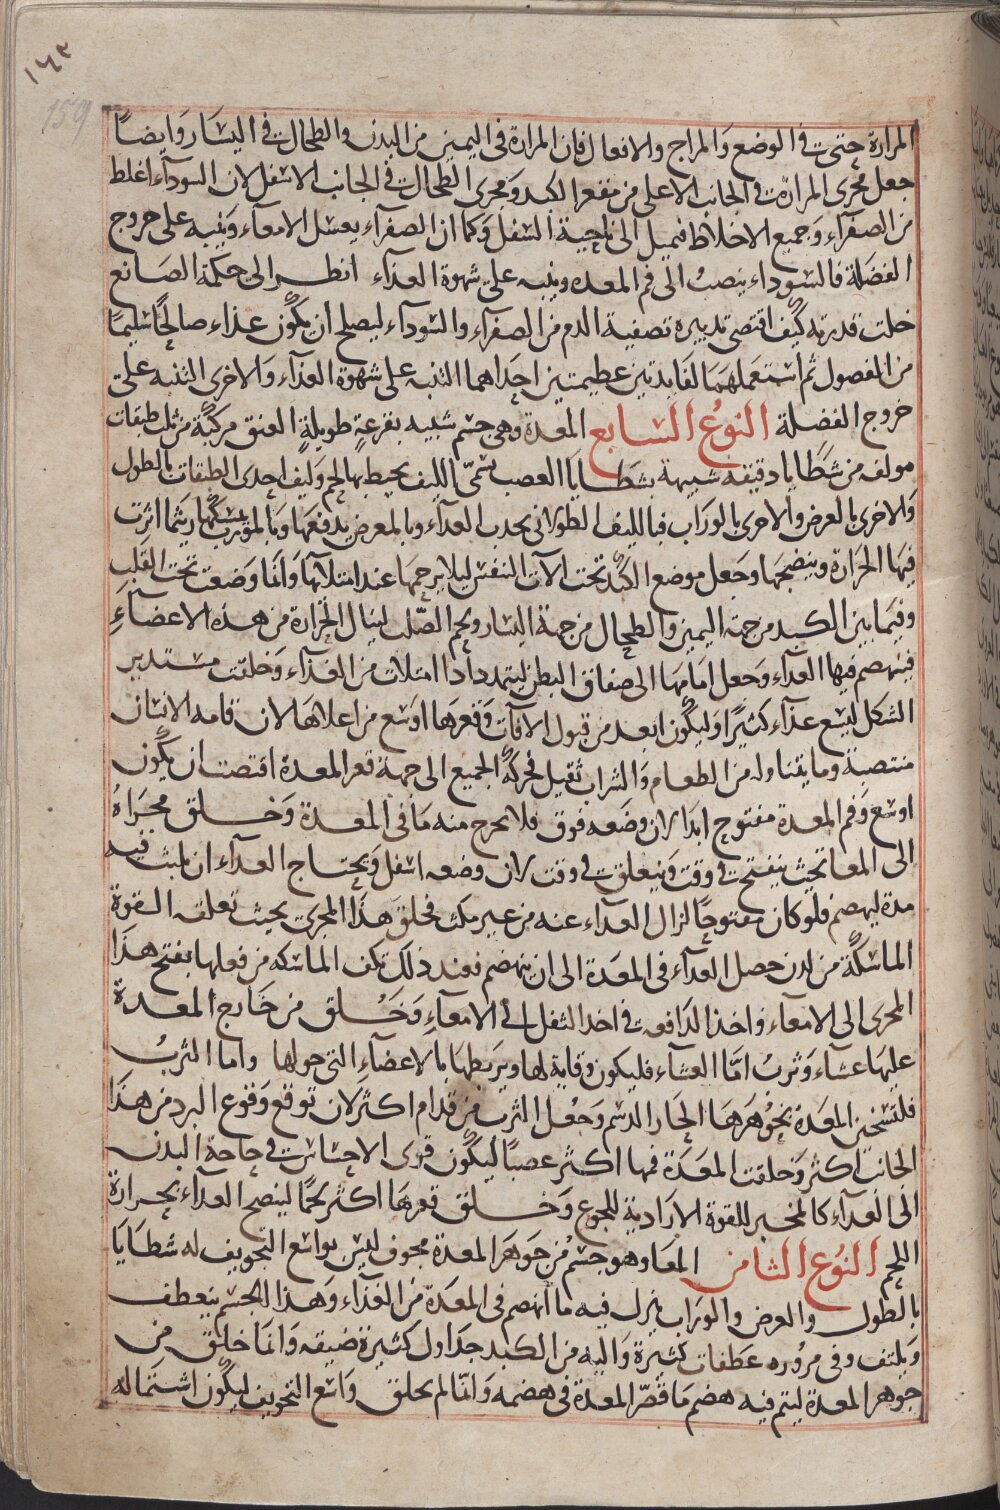 ١٦٢
159
المرارة حتى في الوضع والمزاج والافعال فان المرارة في اليمين من البدن والطحال في اليسار وايضاً
جعل مجرى المرارة في الجانب الاعلى من مقعر الكبد ومجرى الطحال في الجانب الاسفل لان السودآء اغلظ
من الصفرآء وجميع الاخلاط فيميل الى ناحية السفل وكما ان الصفرآء يغسل الامعآء وينبه على خروج
الفضلة فالسودآء ينصب الى فم المعده وينبه على شهوة الغذآء انظر الى حكمة الصانع
جلت قدرته كيف اقتضى تدبيره تصفية الدم من الصفرآء والسودآء ليصلح ان يكون غذاء صالحا سليما
من الفضول ثم استعملهما لفايدتين عظيمتين احداهما التنبه على شهوة الغذآء والاخرى التنبه على
خروج الفضلة النوع السابع المعدة وهي جسم شبيه بقرعة طويلة العنق مركبة من ثلث طبقات
مولفه من شظايا دقيقه شبيهة بشظايا العصب يسمى الليف يحيط بها لحم وليف احدى الطبقات بالطول
والاخرى بالعرض والاخرى بالوراب فبالليف الطولاني يجذب الغدآء وبالمعرض يدفعها وبالمورب يمسكها ريثما اثرت
فيها الحرارة وينضجها وجعل موضع الكبد تحت الآت التنفس ليلا يزحمها عند امتلآئها وانما وضعت تحت القلب
وفيما بين الكبد من جهة اليمين والطحال من جهة اليسار ولحم الصلب لينال الحرارة من هذه الاعضآءِ
فينهضم فيها الغدآء وجعل امامها الى صفاق البطن ليتمدد اذا امتلات من الغذآء وخلقت مستدير
الشكل ليسع غذآء كثيرًا وليكون ابعد من قبول الافات وقعرها اوسع من اعلاها لان قامه الانسان
منتصبة وما يتناوله من الطعام والشراب ثقيل فحركة الجميع الى جهة قعر المعدة اقتضت ان يكون
اوسع وفم المعدة مفتوح ابدا لان وضعه فوق فلا يخرج منه ما في المعدة وخلق مجراهُ
الى المعا بحيث ينفتح في وقت وينغلق في وقت لان وضعه اسفل ويحتاج الغدآء ان يلبث فيه
مدة ليهضم فلو كان مفتوحًا لزال الغداء عنه من غير مكث فخلق هذا المجرى بحيث تعلقه القوة
الماسكة من لدن حصل الغدآء في المعدة الى ان ينهضم فعند ذلك تكف الماسكه من فعلها بفتح هذا
المجرى الى الامعآء واخذ الدافعه في اخذ الثفل الى الامعآءِ وخلق من خارج المعدة
عليها غشاء وثربُ امّا الغشآء فليكون وقاية لها ويربطها بالاعضآءِ التي حولها واما الثربُ
فلتسخن المعدة بجوهرها الحار الدسم وجعل الثرب من قدام اكثر لان توقع وقوع البرد من هذا
الجانب اكثر وخلقت المعدة فمها اكثر عصبًا ليكون قوى الاحساس في حاجة البدن
الى الغدآء كالمخبر للقوة الارادية للجوع وخلق قعرها اكثر لحمًا لينضج الغدآء بحرارة
اللحم النوع الثامن المعا وهو جسم من جوهر المعدة مجوف ليس بواسع التجويف له شظايا
بالطول والعرض والوراب ينزل فيه ما انهضم في المعدة من الغذآء وهذا الجسم ينعطف
ويلتف وفي مروره عطفات كثيرة واليه من الكبد جداول كثيرة ضيقه وانما خلق من
جوهر المعدة ليتم فيه هضم ما قصر المعدة في هضمه وانما لم يخلق واسع التجويف ليكون اشتماله